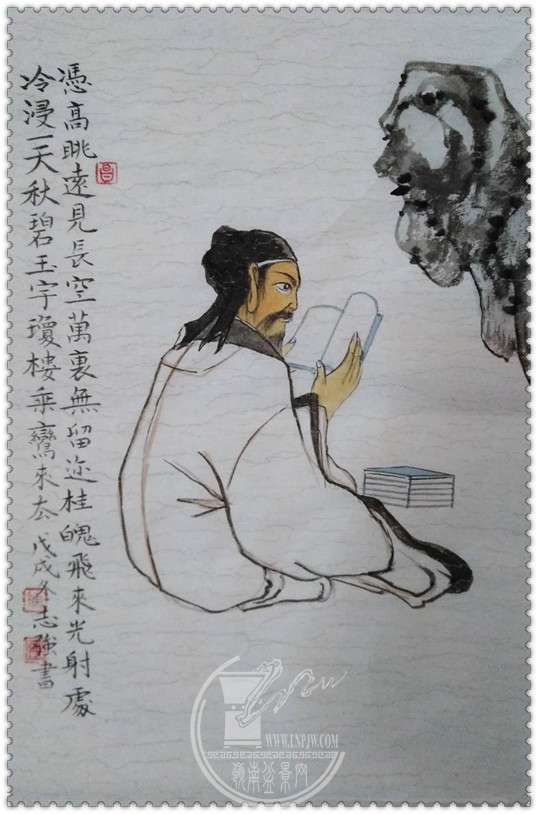 憑高眺遠見長空萬裏無留迹桂魄飛來光射處
冷浸一天秋碧玉宇瓊樓乘鸞來去戊戌冬志強書
WWW.LNPJW.COM
嶺南盆景网